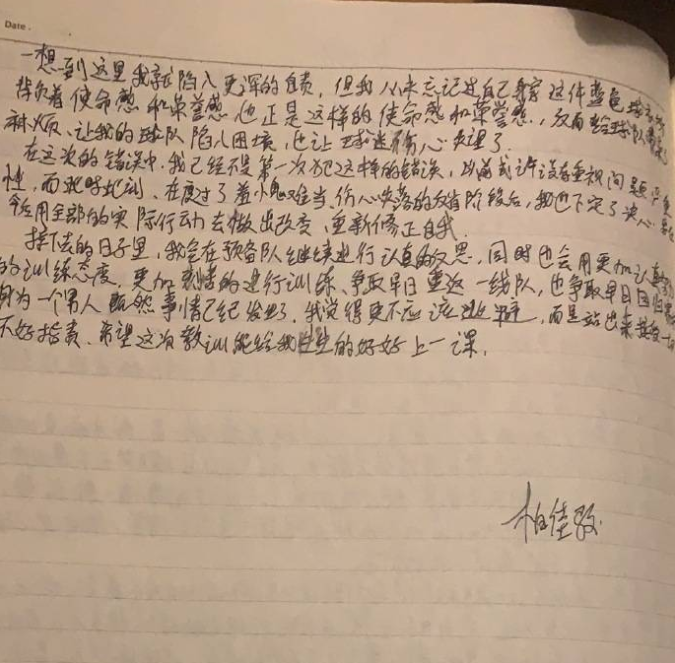 Date.
一想到这里我就陷入更深的自责，但我从未忘记过自己身穿这件蓝色球衣
背负着使命感和荣誉感，也正是这样的使命感和荣誉感，反而给球队带来了
麻烦、让我的球队陷入困境，也让球迷伤心失望了。
在这次的错误中，我已经不是第一次犯这样的错误，以前或许没有重视问题严重
性，而此时此刻、在度过了羞愧难当、伤心失落的阶段后，我也下定了决心
今后用全部的实际行动去做出改变，重新修正自我。
接下去的日子里，我会在预备队继续进行认真的反思，同时也会用更加认真
的训练态度，更加刻苦的进行训练、争取早日重返一线队，也争取早日回归
身为一个男人既然事情已经发生了，我觉得更不应该逃避，而是站出来接受一切
不好指责，希望这次教训能给我的好好上一课。
柏佳骏